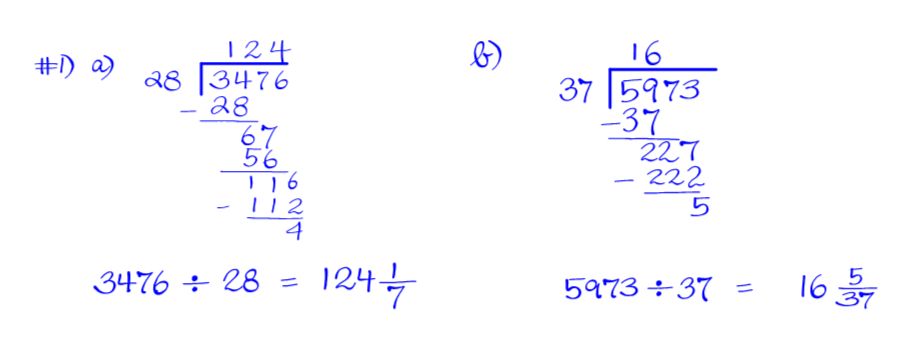 #1) a) 124
28 3476
- 28
67
56
116
- 112
4
3476 ÷ 28 = 124 1/7
b) 16
37 5973
- 37
227
- 222
5
5973 ÷ 37 = 16 5/37